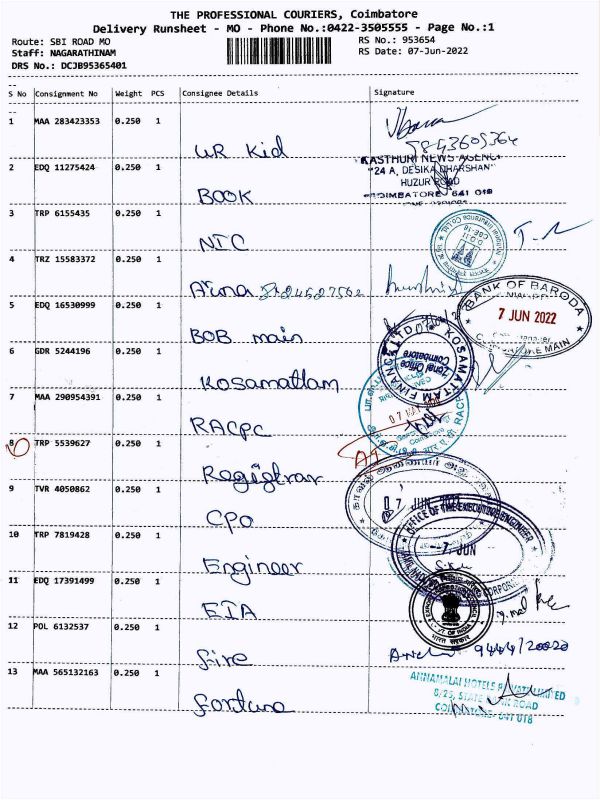 THE PROFESSIONAL COURIERS, Coimbatore
Delivery Runsheet - MO - Phone No.:0422-3505555 - Page No.:1
Route: SBI ROAD MO
RS No.: 953654
Staff: NAGARATHINAM
RS Date: 07-Jun-2022
DRS No.: DCJB95365401
S No Consignment No Weight PCS Consignee Details Signature
1 MAA 283423353 0.250 1
UR Kid
2 EDQ 11275424 0.250 1
KASTHURI NEWS AGENCY
24 A, DESIKA DHARSHAN
HUZUR ROAD
COIMBATORE - 641 018
BOOK
3 TRP 6155435 0.250 1
NIC
4 TRZ 15583372 0.250 1
BANK OF BARODA
7 JUN 2022
COIMBATORE MAIN
5 EDQ 16530999 0.250 1
BOB main
6 GDR 5244196 0.250 1
KOSAMATTAM FINANCE LTD
Zonal Office
Coimbatore
Kosamattam
7 MAA 290954391 0.250 1
RACPC
8 TRP 5539627 0.250 1
Registrar
9 TVR 4050862 0.250 1
07 JUN 2022
CPO
10 TRP 7819428 0.250 1
OFFICE OF THE EXECUTIVE ENGINEER
-7 JUN
Engineer
11 EDQ 17391499 0.250 1
EIA
12 POL 6132537 0.250 1
fire
13 MAA 565132163 0.250 1
ANNAMALAI HOTELS PRIVATE LIMITED
8/25, STATE BANK ROAD
COIMBATORE - 641 018
fortuna